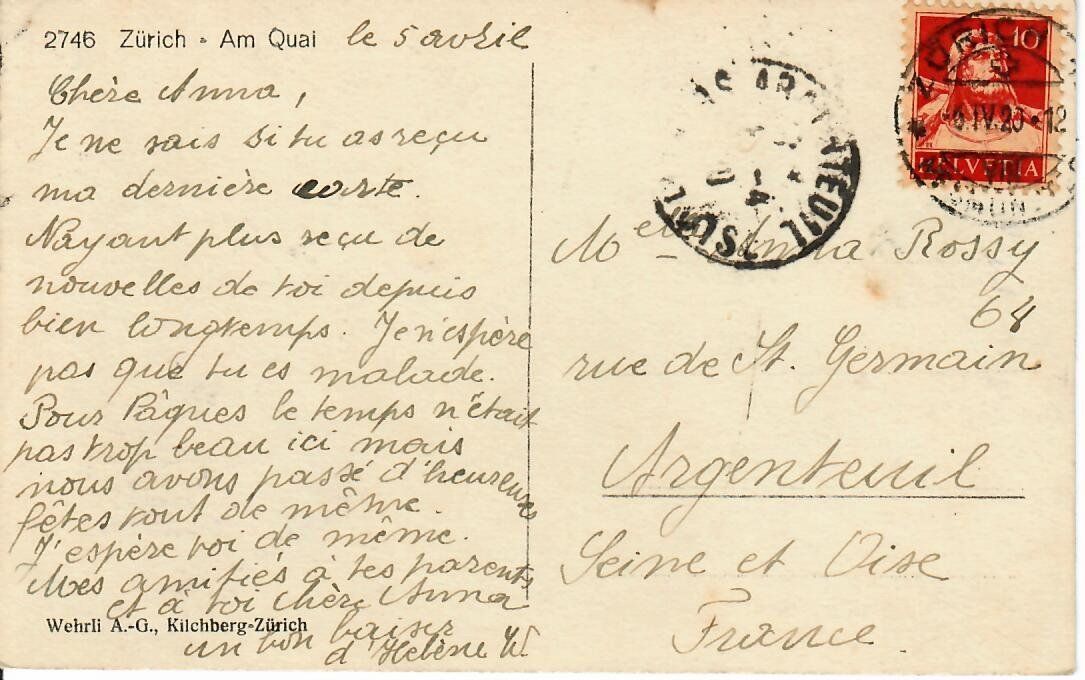 2746 Zürich - Am Quai le 5 avril
Chère Anna,
Je ne sais si tu as reçu
ma dernière carte.
N'ayant plus reçu de
nouvelles de toi depuis
bien longtemps. Je n'espère
pas que tu es malade.
Pour Pâques le temps n'était
pas trop beau ici mais
nous avons passé d'heureuses
fêtes tout de même.
J'espère toi de même.
Mes amitiés à tes parents
et à toi chère Anna
un bon baiser
d'Hélène W.
Wehrli A.-G., Kilchberg-Zürich
10
HELVETIA
ZÜRICH
IV.23-12
ARGENTEUIL
Melle Anna Rossy
64
rue de St. Germain
Argenteuil
Seine et Oise
France